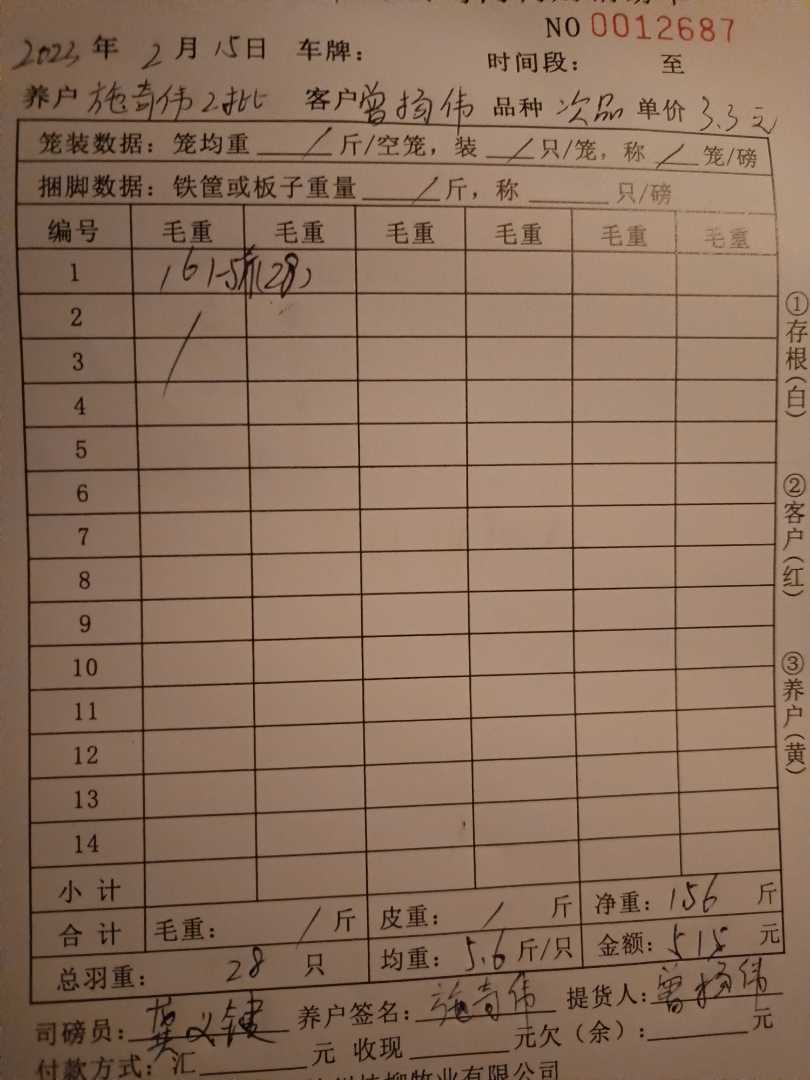 NO 0012687
2023年 2月 15日 车牌： 时间段： 至
养户 施奇伟2批 客户 曾杨伟 品种 次品 单价 3.3元
笼装数据：笼均重 / 斤/空笼，装 / 只/笼，称 / 笼/磅
捆脚数据：铁筐或板子重量 / 斤，称 只/磅
编号 毛重 毛重 毛重 毛重 毛重 毛重
1 161-5斤(28)
2
3
4
5
6
7
8
9
10
11
12
13
14
小计
合计 毛重： / 斤 皮重： / 斤 净重：156 斤
总羽重： 28 只 均重：5.6 斤/只 金额：515 元
司磅员：龚义键 养户签名：施奇伟 提货人：曾杨伟
付款方式：汇 元 收现 元欠（余）： 元
牧业有限公司
①存根（白）
②客户（红）
③养户（黄）